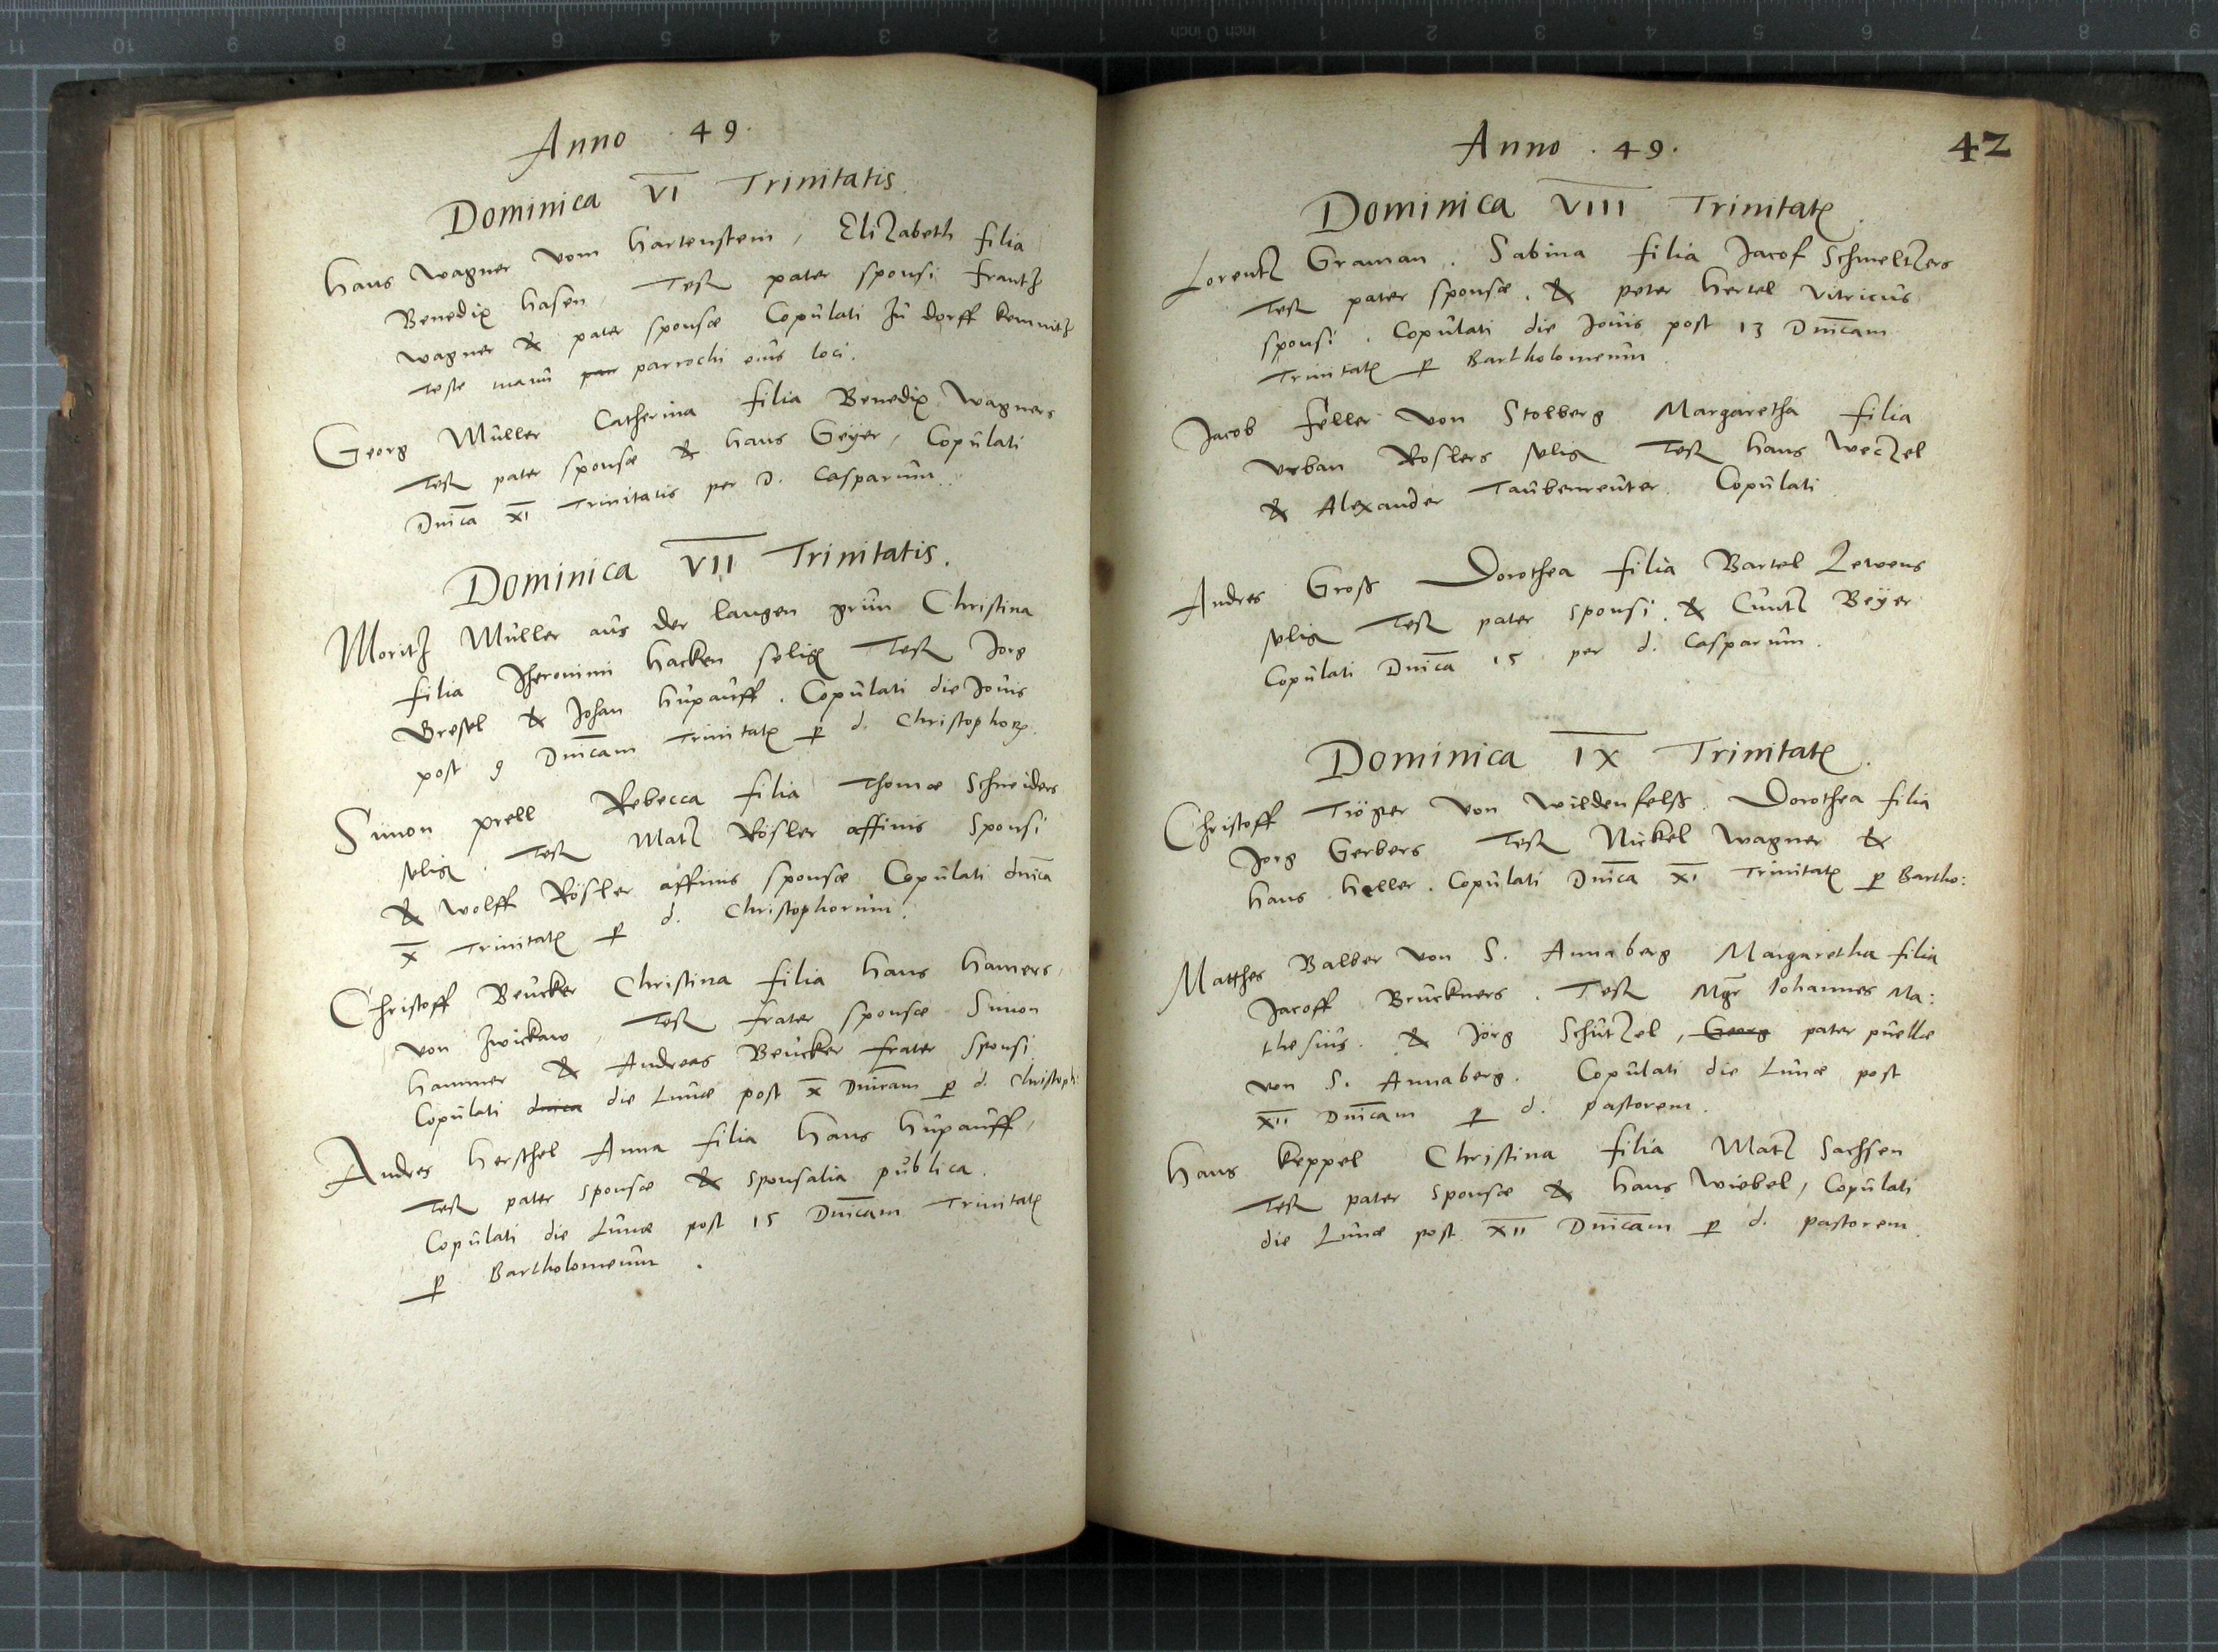 Anno . 49.
Dominica VI Trinitatis.
Hans Wagner vom Hartenstein, Elizabeth filia
Benedix Hasen, Test pater sponsi Frantz
Wagner & pater sponsæ Copulati zu dorff kemnitz
Teste manu par parrochi eius loci.
Georg Müller Catherina filia Benedix Wagners
Test pater sponsæ & Hans Geÿer, Copulati
Dnica XI Trinitatis per D. Casparum.
Dominica VII Trinitatis.
Moritz Müller aus der langen grün Christina
filia Jheronimi Hacken selig Test Jorg
& Johan Hupauff. Copulati die Jovis
post 9 Dnicam Trinitat p d. Christophor.
Simon Prell Rebecca filia Thomæ Schneiders
selig. Test Matz Rösler affinis Sponsi
& Wolff Rösler affinis sponsæ Copulati dnica
X Trinitat p d. Christophorum.
Christoff Beucker Christina filia Hans Hamers,
von Zwickaw, Test frater sponsæ Simon
Hammer & Andreas Beucker frater Sponsi
Copulati dnica die Lunæ post X Dnicam p d. Christoph:
Andres Herschel Anna filia Hans Hupauff,
Test pater Sponsæ & Sponsalia publica.
Copulati die Lunæ post 15 Dnicam Trinitat
p Bartholomeum.
Anno . 49.
42
Dominica VIII Trinitat.
Lorentz Graman. Sabina filia Jacof Schmeltzers
Test pater sponsæ. & peter Hertel Vitricus
sponsi. Copulati die Jovis post 13 Dnicam
Trinitat p Bartholomeum.
Jacob Feller Von Stolberg Margaretha filia
Urban Roslers selig Test Hans Weczel
& Alexander Taubenreuter. Copulati
Andres Gross Dorothea filia Bartel Lewens
selig Test pater Sponsi. & Cuntz Beÿer
Copulati Dnica 15 per d. Casparum.
Dominica IX Trinitat.
Christoff Tröger Von Wildenfelss. Dorothea filia
Jorg Gerbers Test Nickel Wagner &
Hans Heller. Copulati Dnica XI Trinitat p Bartho:
Matthes Balber Von S. Annaberg Margaretha filia
Jacoff Bruckners. Test Mgr Johannes Ma:
thesius. & Jörg Schützel, Georg pater puellæ
von S. Annaberg. Copulati die Lunæ post
XII Dnicam p d. pastorem.
Hans Keppel Christina filia Matz Sachsen
Test pater Sponsæ & Hans Wiebel, Copulati
die Lunæ post XII Dnicam p d. pastorem.